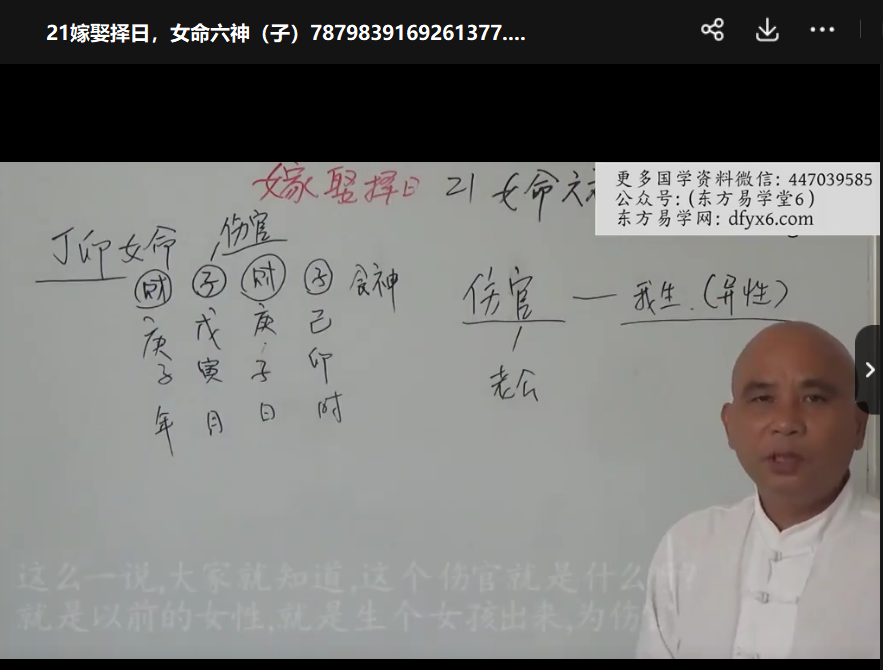 21嫁娶择日，女命六神（子）7879839169261377....
嫁娶择日 21 女命六
更多国学资料微信: 447039585
公众号: (东方易学堂6)
东方易学网: dfyx6.com
丁卯女命
伤官
财 子 财 子 食神
庚 戊 庚 己
子 寅 子 卯
年 月 日 时
伤官 — 我生.(异性)
老公
这么一说,大家就知道,这个伤官就是什么
就是以前的女性,就是生个女孩出来,为伤